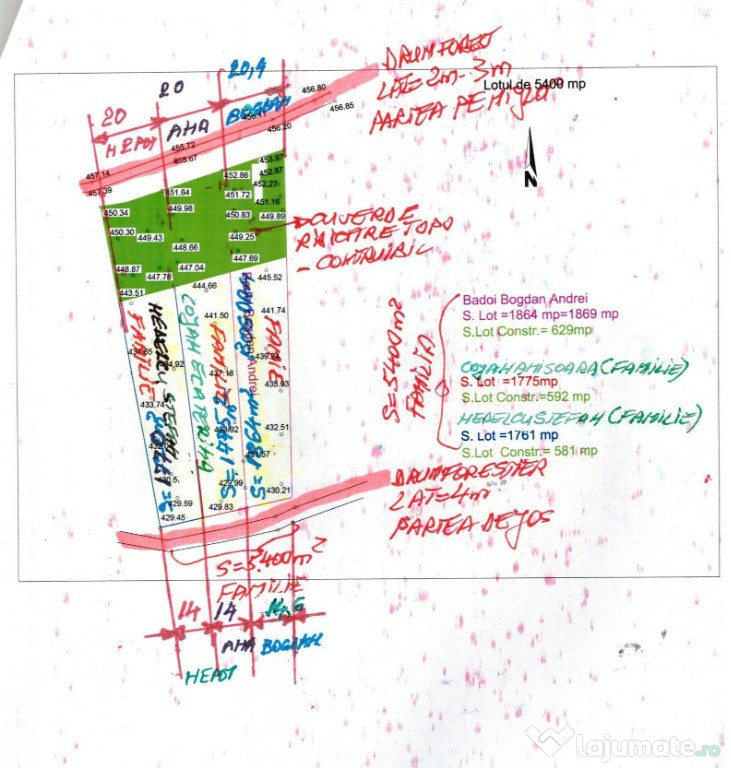 20,4
20
20
NEPOT
ANA
BOGDAN
DRUM FOREST
LAT= 2m - 3m
PARTEA PE
Lotul de 5400 mp
456.80
456.85
456.11
456.20
456.72
455.67
457.14
457.39
453.97
452.87
452.86
452.27
451.64
451.72
451.16
450.34
449.98
450.83
449.89
450.30
449.43
449.25
448.66
447.69
448.87
447.78
447.04
445.52
443.51
444.66
N
TOPO
441.50
441.74
FAMILIE
FAMILIE
ECATERINA
Badoi Bogdan Andrei
439.24
437.18
435.93
433.74
432.51
429.99
430.21
429.59
429.83
429.45
Badoi Bogdan Andrei
S. Lot =1864 mp=1869 mp
S.Lot Constr.= 629mp
(FAMILIE)
S. Lot =1775mp
S.Lot Constr.=592 mp
(FAMILIE)
S. Lot =1761 mp
S. Lot Constr.= 581 mp
S=5400m²
FAMILIA
DRUM FORESTIER
LAT=4m
PARTEA DE JOS
S=5.400m²
FAMILIE
14
14
14,6
ANA
BOGDAN
NEPOT
lajumate.ro